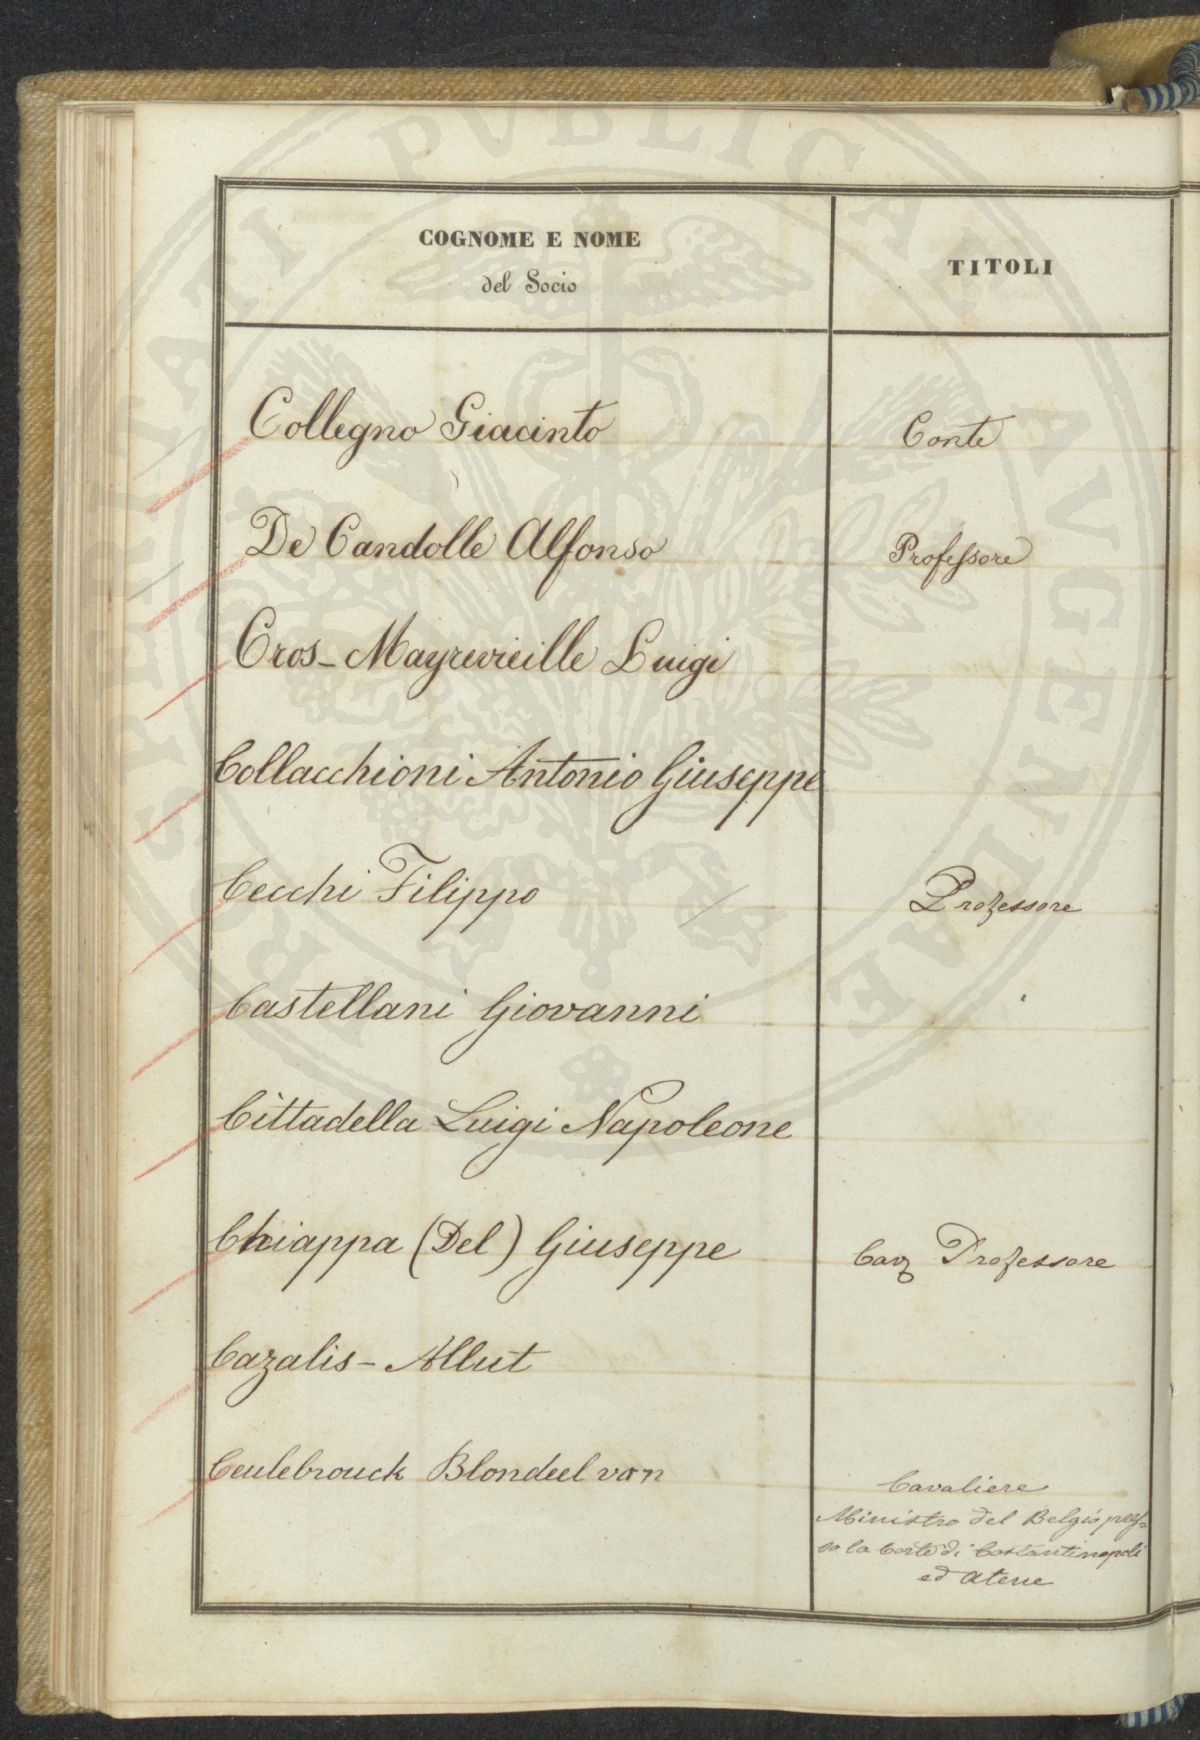 COGNOME E NOME
del Socio
TITOLI
Collegno Giacinto
Conte
De Candolle Alfonso
Professore
Cros-Mayrevieille Luigi
Collacchioni Antonio Giuseppe
Cecchi Filippo
Professore
Castellani Giovanni
Cittadella Luigi Napoleone
Chiappa (Del) Giuseppe
Cav Professore
Cazalis-Allut
Ceulebrouck Blondeel van
Cavaliere
Ministro del Belgio pres=
so la Corte di Costantinopoli
ed Atene
PROSPERITATI PVBLICAE AVGENDAE